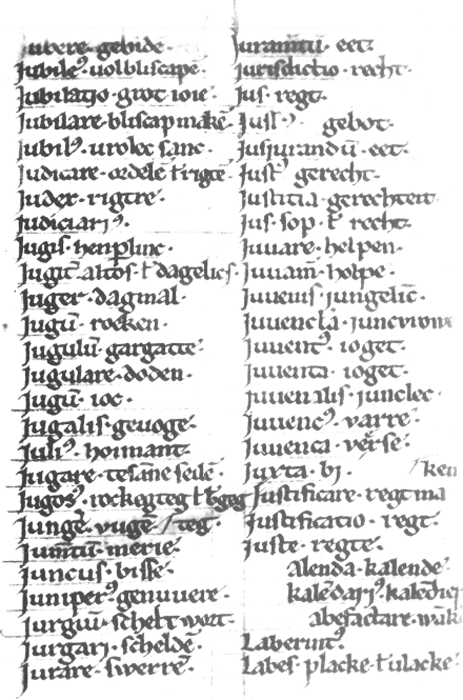 Iubere gebide·
Jubile⁹·uolbliscape·
Jubilatio·grot ioie·
Jubilare·bliscap make·
Jubil⁹·urolec sanc·
Judicare·ordele ł rigte
Juder·rigtre·
Judiciari⁹·
Jugis·henplinc·
Jugit̄ altos·ł dagelics·
Juger·dagmal·
Jugū·rocken·
Jugulū·gargatte·
Jugulare·doden·
Jugū·ioc·
Jugalis·geuoge·
Juli⁹·hoimant·
Jugare·tesāne sede·
Jugos⁹·rockegteg
Jungē·vuge·/teg·
Jumtū·merie·
Juncus·bisse·
Juniper⁹·genuuere·
Jurgiū·schelt wort·
Jurgari·schelde·
Jurare·swerre·
Juramtū·eet·
Jurisdictio·recht·
Jus·regt·
Jusl⁹· gebot·
Jusjurandū·eet·
Just⁹ gerecht·
Justitia·gerechteit·
Jus·sop·ł recht·
Juuare·helpen·
Juuam·holpe·
Juuenis·jungelic·
Juuencla·
Juuent⁹·ioget·
Juuenta·ioget·
Juuenalis·junclec·
Juuenc⁹·varre·
Juuenca·verse·
Juxta·bi· /ken
Justificare·regt ma
Justificatio·regt·
Juste·regte·
alenda·kalende
kalēdari⁹·
abefactare·
Laberint⁹·
Labes·placke·ł ulacke·